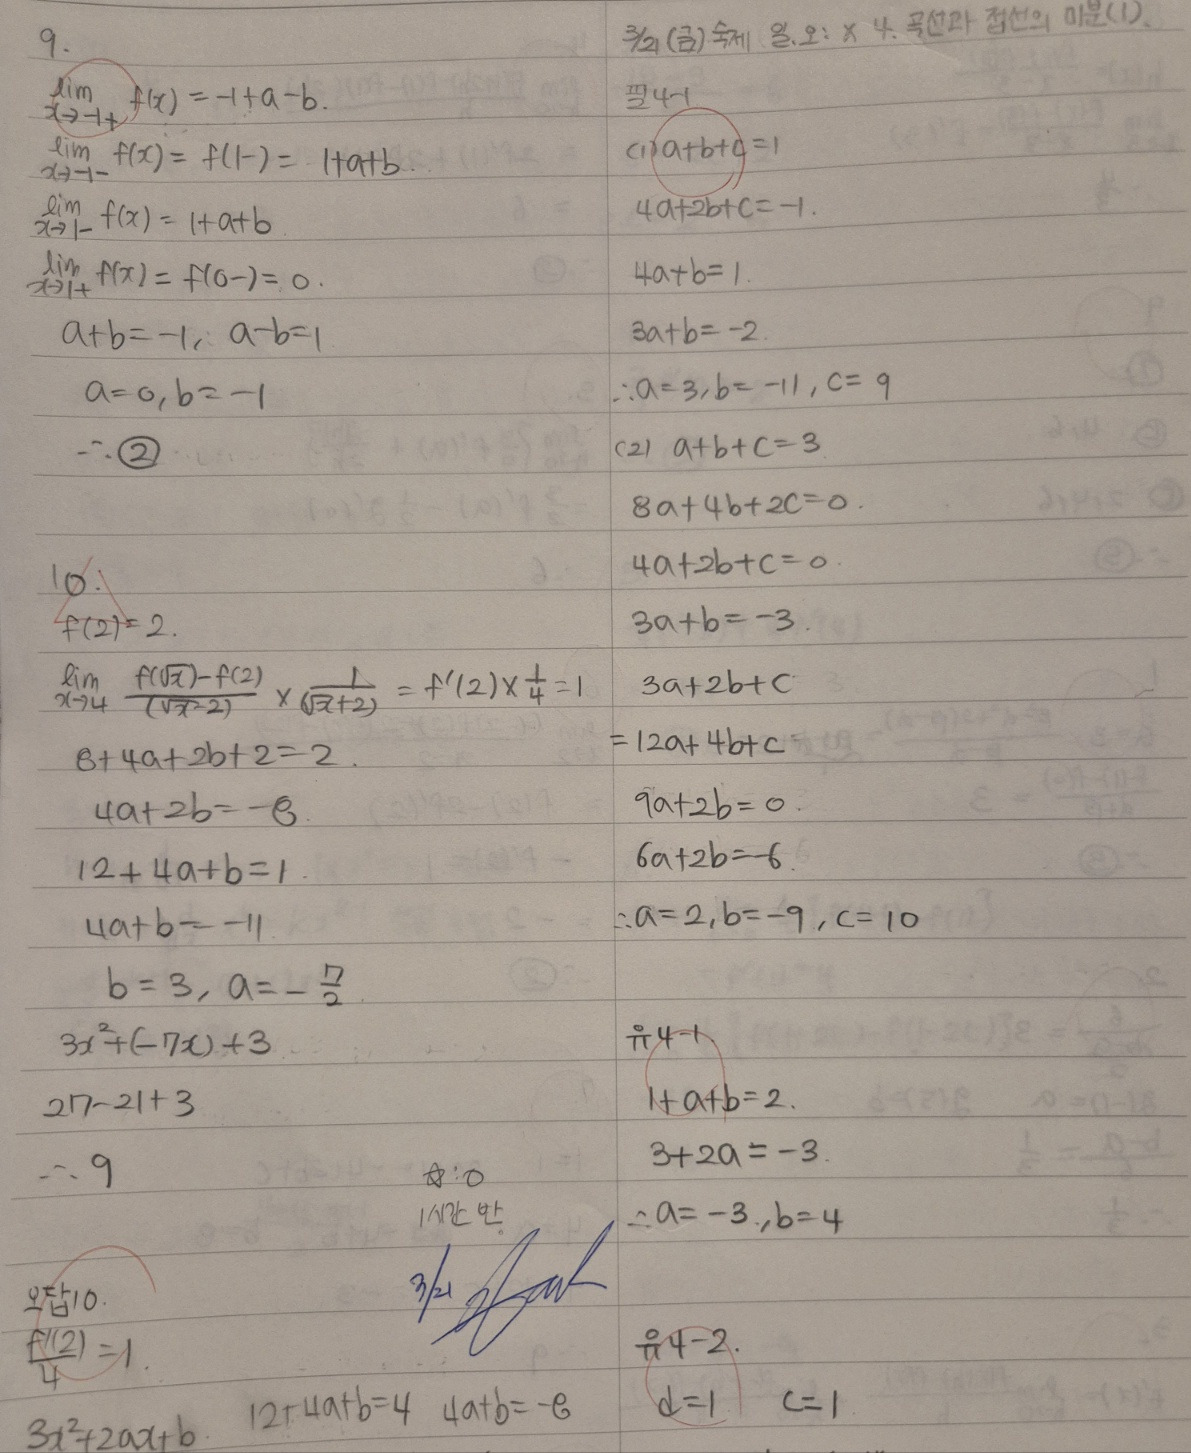 9.
lim x→-1+ f(x) = -1+a-b.
lim x→-1- f(x) = f(1-) = 1+a+b.
lim x→1- f(x) = 1+a+b
lim x→1+ f(x) = f(0-) = 0.
a+b=-1, a-b=1
a=0, b=-1
∴②
10.
f(2)=2.
lim x→4 f(√x)-f(2)/(√x-2) × 1/(√x+2) = f'(2)×1/4=1
8+4a+2b+2=2.
4a+2b=-8.
12+4a+b=1.
4a+b=-11
b=3, a=-7/2
3x²+(-7x)+3
27-21+3
∴9
☆:0
1시간 반
3/21
오답10.
f'(2)/4=1.
12+4a+b=4 4a+b=-8
3x²+2ax+b
3/21 (금) 숙제 일.오: × 4. 곡선과 접선의 미분(1).
필4-1
(1) a+b+c=1
4a+2b+c=-1.
4a+b=1.
3a+b=-2.
∴a=3, b=-11, c=9
(2) a+b+c=3
8a+4b+2c=0.
4a+2b+c=0.
3a+b=-3.
3a+2b+c
=12a+4b+c
9a+2b=0.
6a+2b=-6.
∴a=2, b=-9, c=10
유4-1.
1+a+b=2.
3+2a=-3.
∴a=-3, b=4
유4-2.
d=1 c=1